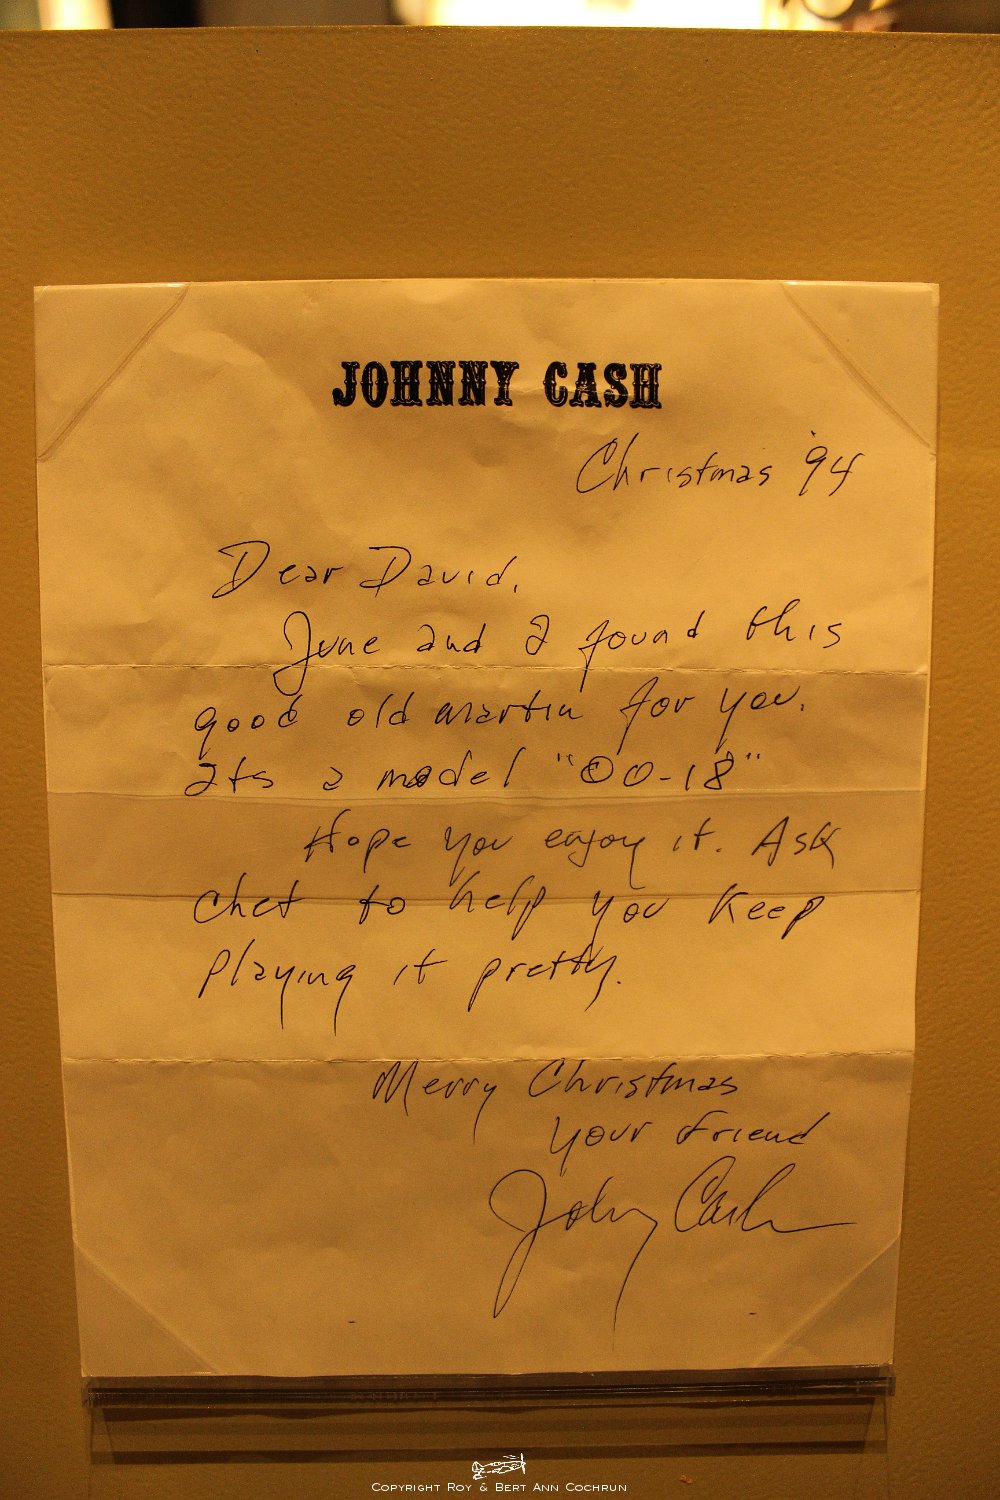 JOHNNY CASH
Christmas '94
Dear David,
June and I found this
good old martin for you.
Its a model "00-18"
Hope you enjoy it. Ask
Chet to help you keep
playing it pretty.
Merry Christmas
Your friend
Johnny Cash
COPYRIGHT ROY & BERT ANN COCHRUN